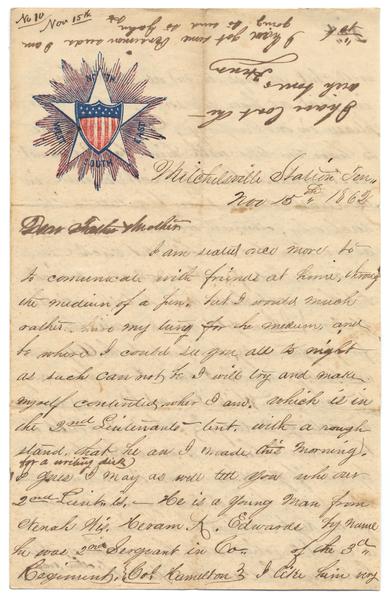 No 10
Nov 15th
"10 k"
I have got some Persimon seeds I am
going to send to John
I have lost the
NORTH
WEST
EAST
SOUTH
Mitchelsville Station Ten.
Nov 15th 1862
Dear Father & Mother
I am seated once more to
to comunicate with friends at home, through
the medium of a pen. but I would much
rather my tung for the medium, and
to where I could see you all to night
as such can not be I will try and make
myself contented wher I am. which is in
the 2nd Lieutenants tent, with a rough
stand, that he an I made this morning.
for a writing desk
I guess I may as well tell you who our
2nd Lieut is, — He is a Young Man from
Nenah Wis, Hiram K. Edwards by name
he was 2nd Sergeant in Co. of the 3d
Regiment, Col Hamilton's I like him very